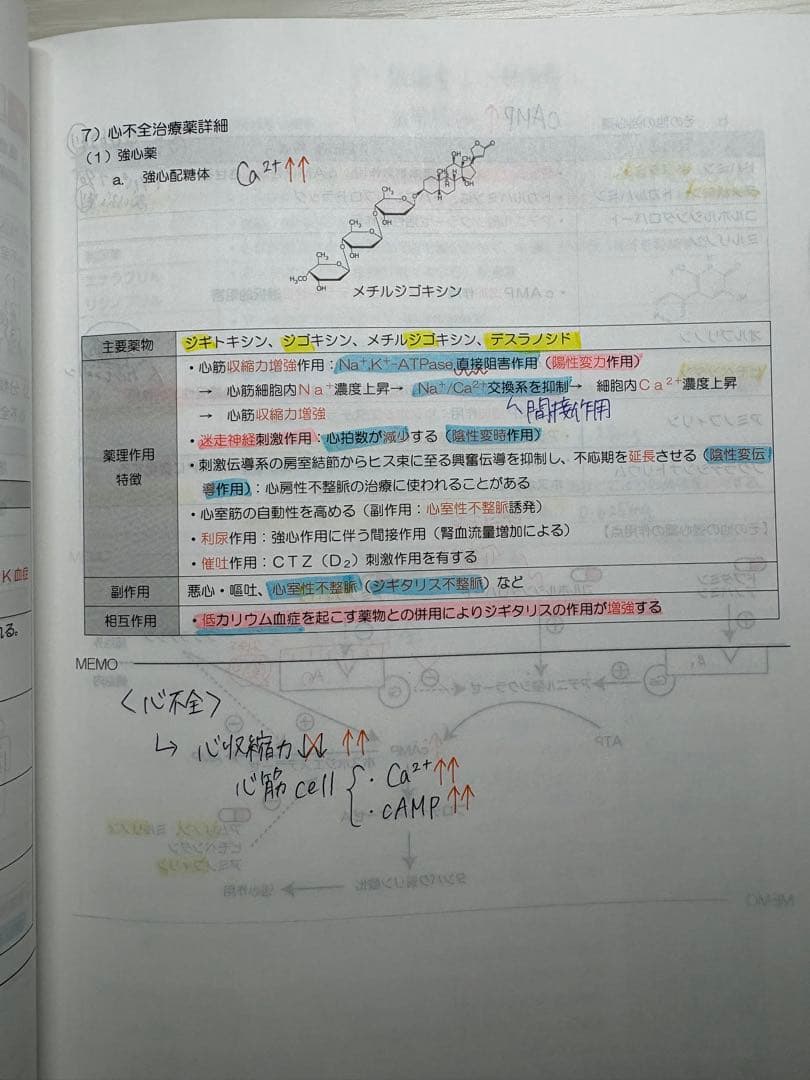 7）心不全治療薬詳細
（1）強心薬
a. 強心配糖体 Ca²⁺↑↑
メチルジゴキシン
主要薬物 ジギトキシン、ジゴキシン、メチルジゴキシン、デスラノシド
薬理作用
特徴
・心筋収縮力増強作用：Na⁺,K⁺-ATPase直接阻害作用（陽性変力作用）
→ 心筋細胞内Na⁺濃度上昇→ Na⁺/Ca²⁺交換系を抑制→ 細胞内Ca²⁺濃度上昇
→ 心筋収縮力増強
間接作用
・迷走神経刺激作用：心拍数が減少する（陰性変時作用）
・刺激伝導系の房室結節からヒス束に至る興奮伝導を抑制し、不応期を延長させる（陰性変伝
導作用）：心房性不整脈の治療に使われることがある
・心室筋の自動性を高める（副作用：心室性不整脈誘発）
・利尿作用：強心作用に伴う間接作用（腎血流量増加による）
・催吐作用：CTZ（D₂）刺激作用を有する
副作用 悪心・嘔吐、心室性不整脈（ジギタリス不整脈）など
相互作用 ・低カリウム血症を起こす薬物との併用によりジギタリスの作用が増強する
MEMO
〈心不全〉
↳ 心収縮力↓↓ ↑↑
心筋cell { ・Ca²⁺↑↑
・cAMP↑↑
K血症